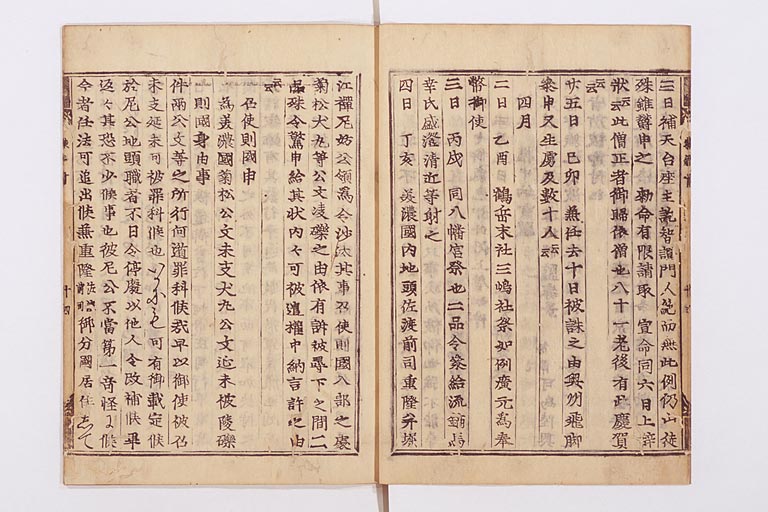 三日補天台座主記智證門人先而無此例仍山徒
殊雖欝申之 勅命有限請取 宣命同六日上辞
状云此僧正者御歸依僧也八十一老後有此慶賀
云云
廿五日 己卯 兼任去十日被誅之由奥州飛脚
參申又生虜及數十人云云
四月
二日 乙酉 鶴岳末社三嶋社祭如例廣元爲奉
幣御使
三日 丙戌 同八幡宮祭也二品令參給流鏑馬
幸氏盛澄清近等射之
四日 丁亥 美濃國内地頭佐渡前司重隆并堀
江禪尼妨公領爲令沙汰其事召使則國入部之處
菊松犬丸等公文凌礫之由依有訴被尋下之間二
品殊令驚申給其状内々可被進權中納言許之由
云云
召使則國申
爲美濃國菊松公文未支犬丸公文近未被陵礫
則國身由事
件兩公文等之所行何遁罪科候哉早以御使被召
未支延未可被罪科候也いかにも可有御裁定候
於尼公地頭職者不日令停廢以他人令改補候畢
返々其恐不少候事也彼尼公不當第一奇怪に候
今者任法可追出候兼重隆御分國居住して
十四